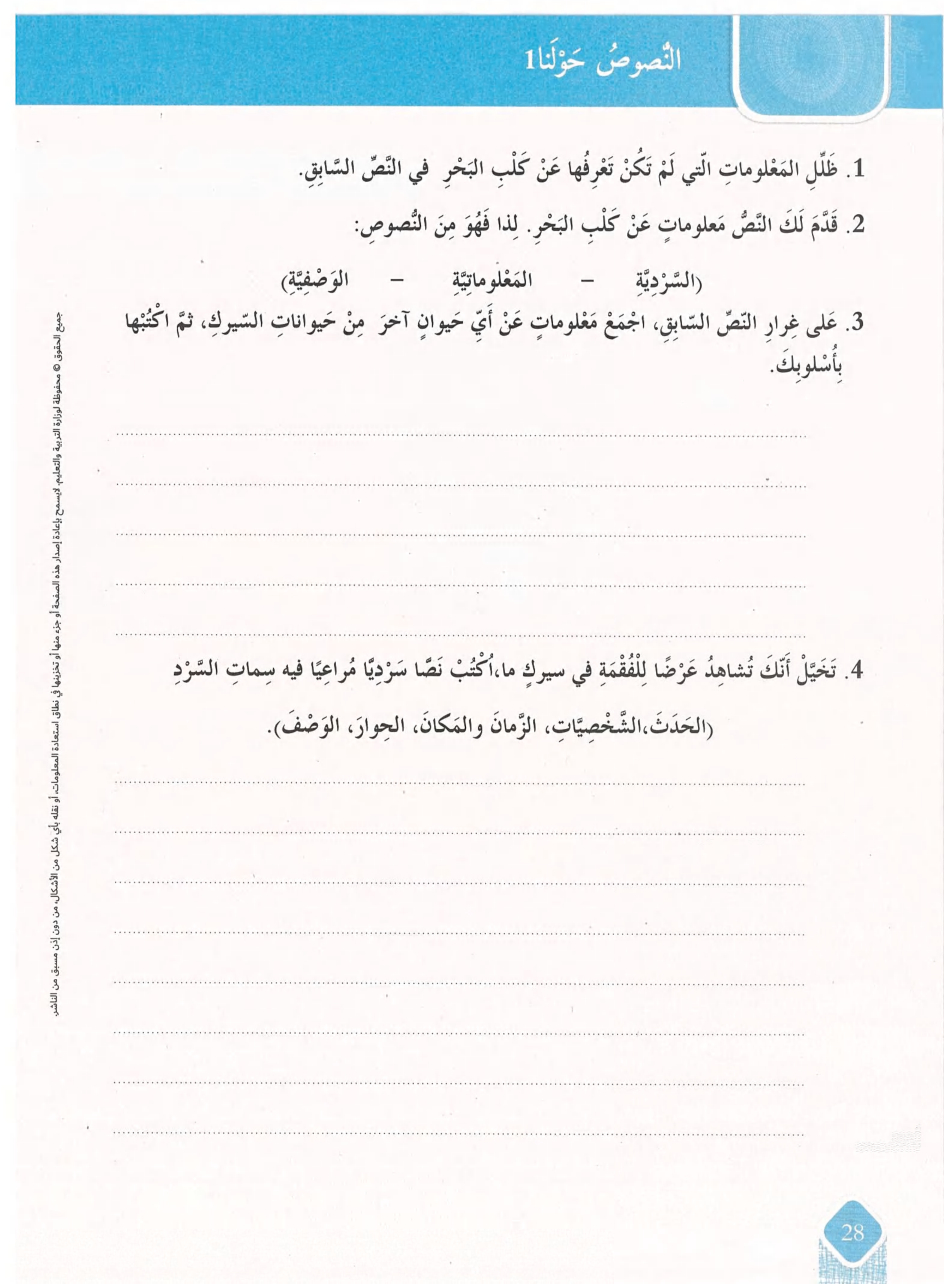 النُّصوصُ حَوْلَنا1
1. ظَلِّلِ المَعْلوماتِ الّتي لَمْ تَكُنْ تَعْرِفُها عَنْ كَلْبِ البَحْرِ في النَّصِّ السَّابِقِ.
2. قَدَّمَ لَكَ النَّصُّ مَعلوماتٍ عَنْ كَلْبِ البَحْرِ. لِذا فَهُوَ مِنَ النُّصوصِ:
(السَّرْدِيَّةِ – المَعْلوماتِيَّةِ – الوَصْفِيَّةِ)
3. عَلى غِرارِ النّصِّ السّابِقِ، اجْمَعْ مَعْلوماتٍ عَنْ أَيِّ حَيوانٍ آخرَ مِنْ حَيواناتِ السّيركِ، ثمَّ اكْتُبْها
بِأُسْلوبِكَ.
4. تَخَيَّلْ أَنَّكَ تُشاهِدُ عَرْضًا لِلْفُقْمَةِ في سيركٍ ما،اُكْتُبْ نَصًّا سَرْدِيًّا مُراعِيًا فيه سِماتِ السَّرْدِ
(الحَدَثَ،الشَّخْصِيَّاتِ، الزَّمانَ والمَكانَ، الحِوارَ، الوَصْفَ).
جميع الحقوق © محفوظة لوزارة التربية والتعليم. لايسمح بإعادة إصدار هذه الصفحة أو جزء منها أو تخزينها في نطاق استعادة المعلومات، أو نقله بأي شكل من الأشكال، من دون إذن مسبق من الناشر.
28